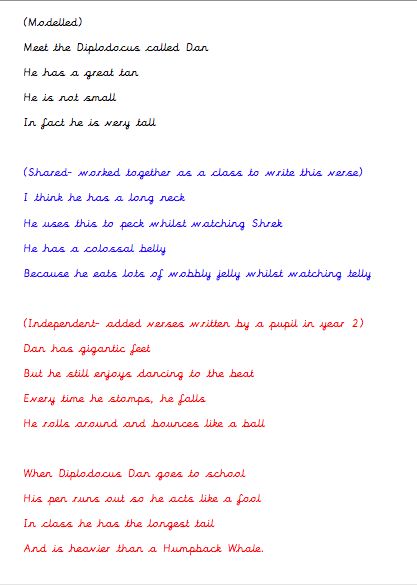 (Modelled)
Meet the Diplodocus called Dan
He has a great tan
He is not small
In fact he is very tall
(Shared- worked together as a class to write this verse)
I think he has a long neck
He uses this to peck whilst watching Shrek
He has a colossal belly
Because he eats lots of wobbly jelly whilst watching telly
(Independent- added verses written by a pupil in year 2)
Dan has gigantic feet
But he still enjoys dancing to the beat
Every time he stomps, he falls
He rolls around and bounces like a ball
When Diplodocus Dan goes to school
His pen runs out so he acts like a fool
In class he has the longest tail
And is heavier than a Humpback Whale.